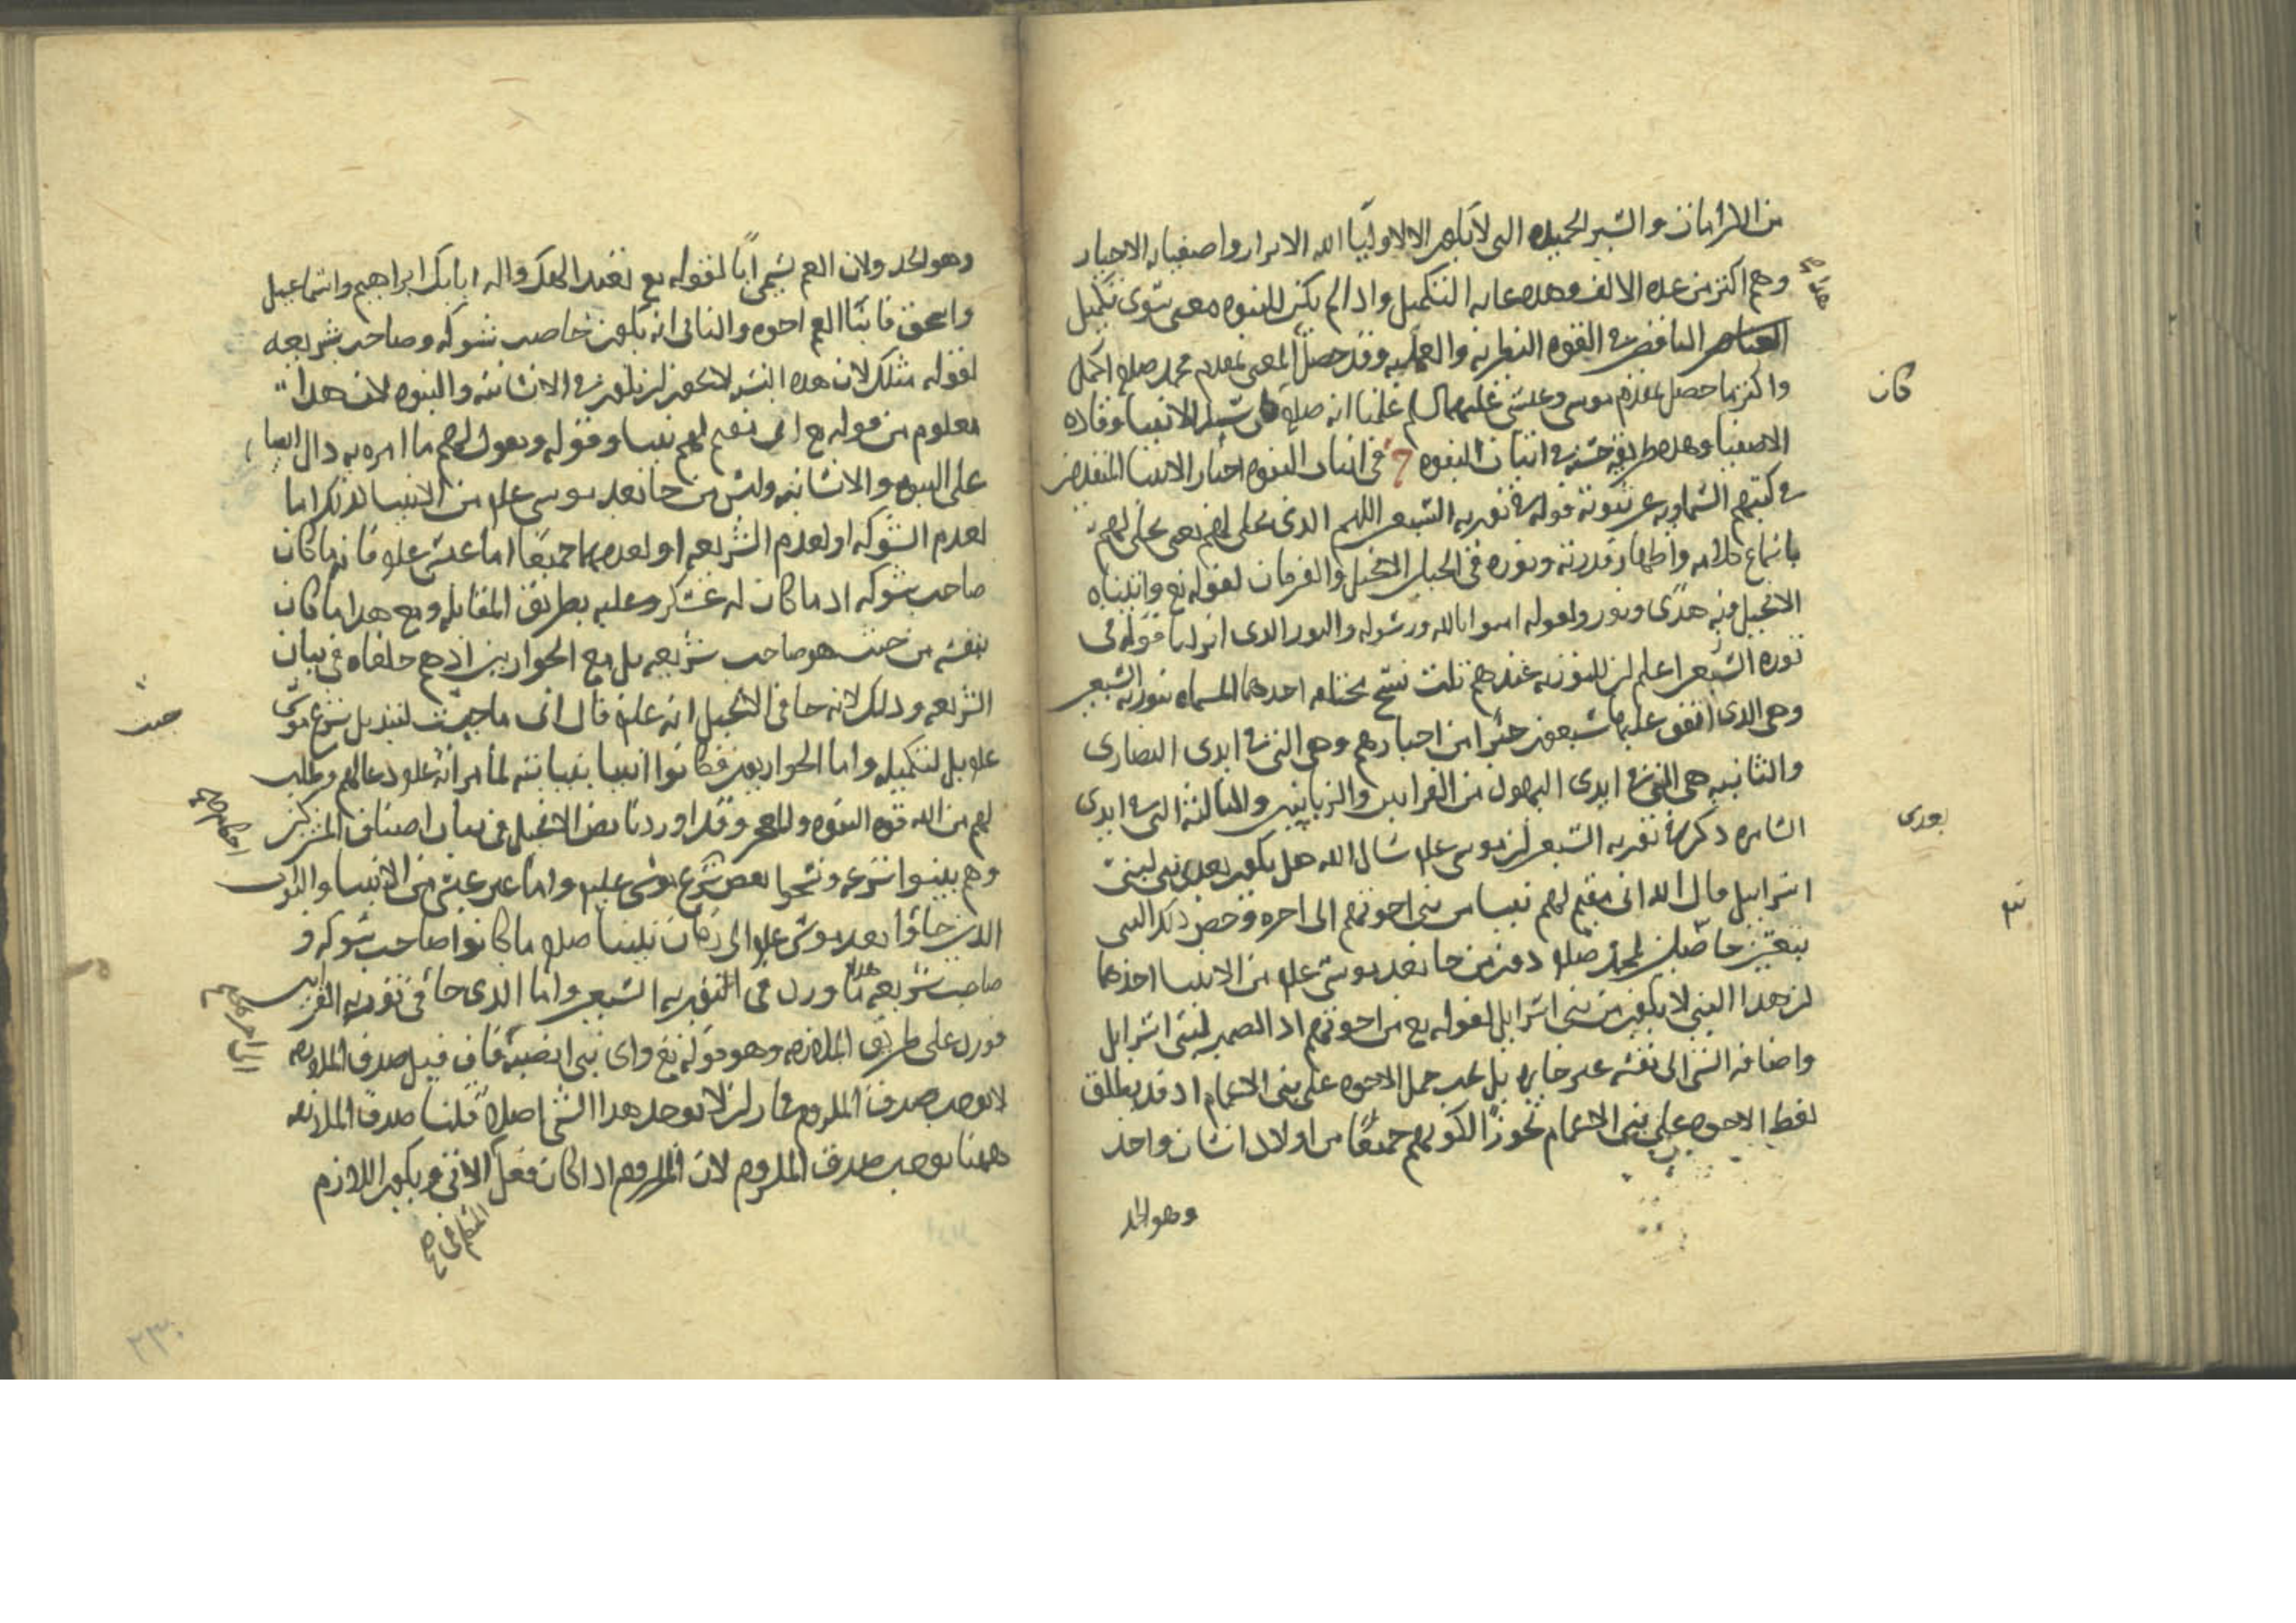 من الكرامات والسير الجميله التى لا تكون الا لاوليا الله الابرار واصفيايه الاخيار
وهم اكثر من عده الالف وهده غايه التكميل واذا لم يكن للنبوه معنى سوى تكميل
الناقص فى القوه النظريه والعمليه وقد حصل المعنى بمقدم محمد صلع اكمل
واكثر مما حصل بمقدم موسى وعيسى عليهما السلم علمنا انه صلع كان سيد الانبيا وقاده
الاصفيا وهده طريقه حسنه فى اثبات النبوه فى اثبات النبوه اخبار الانبيا المتقدمين
فى كتبهم السماويه عن نبوته قوله فى توريه السبعين اللهم الدى تجلى لهم يعنى تجلى لهم
باسماع كلامه واظهار قدرته ونوره فى الجبل الانجيل والفرقان لقوله تع واتيناه
الانجيل فيه هدى ونور ولقوله امنوا بالله ورسوله والنور الدى انزلنا قوله فى
توره السبعين اعلم ان للتوريه عندهم ثلث نسخ مختلفه احدهما المسماه بتوريه السبعين
وهى الدى اتفق عليها سبعون حبرا من احبارهم وهى التى فى ايدى النصارى
والثانيه هى التى فى ايدى اليهود من القرايين والربانيين والثالثه التى فى ايدى
السامره دكر فى توريه السبعين ان موسى علم سال الله هل يكون بعدى نبى لبنى
اسرايل قال الله انى مقيم لهم نبيا من بنى اخوتهم الى اخره وخص ذلك النبى
بنعتين حاصلين لمحمد صلع دون من جا بعد موسى علم من الانبيا احدهما
ان هدا النبى لا يكون من بنى اسرايل لقوله تع من اخوتهم اد الضمير لبنى اسرايل
واضافه الشى الى نفسه غير جايزه بل يجب حمل الاخوه على بنى الاعمام اد قد يطلق
لفظ الاخوه على بنى الاعمام تجوزا لكونهم جميعا من اولاد انسان واحد
وهو الجد
كان
بعدى
وهو الجد ولان العم يسمى ابا لقوله تع نعبد الهك واله ابايك ابراهيم واسماعيل
واسحق فابنا العم اخوه والثانى انه يكون صاحب شوكه وصاحب شريعه
لقوله مثلك لان هده النسبه لا تجوز ان تكون فى الانسانيه والنبوه لان هدا
معلوم من قوله تع انى مقيم لهم نبيا وقوله ويقول لهم ما امره به دال ايضا
على النبوه والانسانيه وليس من جا بعد موسى علم من الانبيا كذلك اما
لعدم الشوكه او لعدم الشريعه او لعدمهما جميعا اما عيسى علم فانه ما كان
صاحب شوكه اد ما كان له عسكر وغلبه بطريق المقاتله ومع هدا ما كان
بنفسه من حيث هو صاحب شريعه بل مع الحواريين اد هم خلفاه فى بيان
الشريعه ودلك لانه جا فى الانجيل انه علم قال انى ما جيت لتبديل شرع موسى
علم بل لتكميله واما الحواريون فكانوا انبيا بنيابته لما مر انه علم دعا لهم وطلب
لهم من الله قوه النبوه والمعجز وقد اوردنا نص الانجيل فى بيان اصناف المشركين
وهم بينوا شرعه ونسخوا بعض شرع موسى علم واما غير عيسى من الانبيا والنواب
الدين جاوا بعد موسى علم الى زمان نبينا صلع ما كانوا صاحب شوكه و
صاحب شريعه هدا ما ورد فى التوريه السبعين واما الدى جا فى توريه القرايين
فورد على طريق الملازمه وهو قوله تع واى نبى انصبه فان قيل صدق الملازمه
لا يوجب صدق الملزوم فجاز ان لا يوجد هدا الشى اصلا قلنا صدق الملازمه
ههنا يوجب صدق الملزوم لان الملزوم اذا كان فعل الاتى ويكون اللازم
جيت
احكام
المتكلم فى
٢٣٠